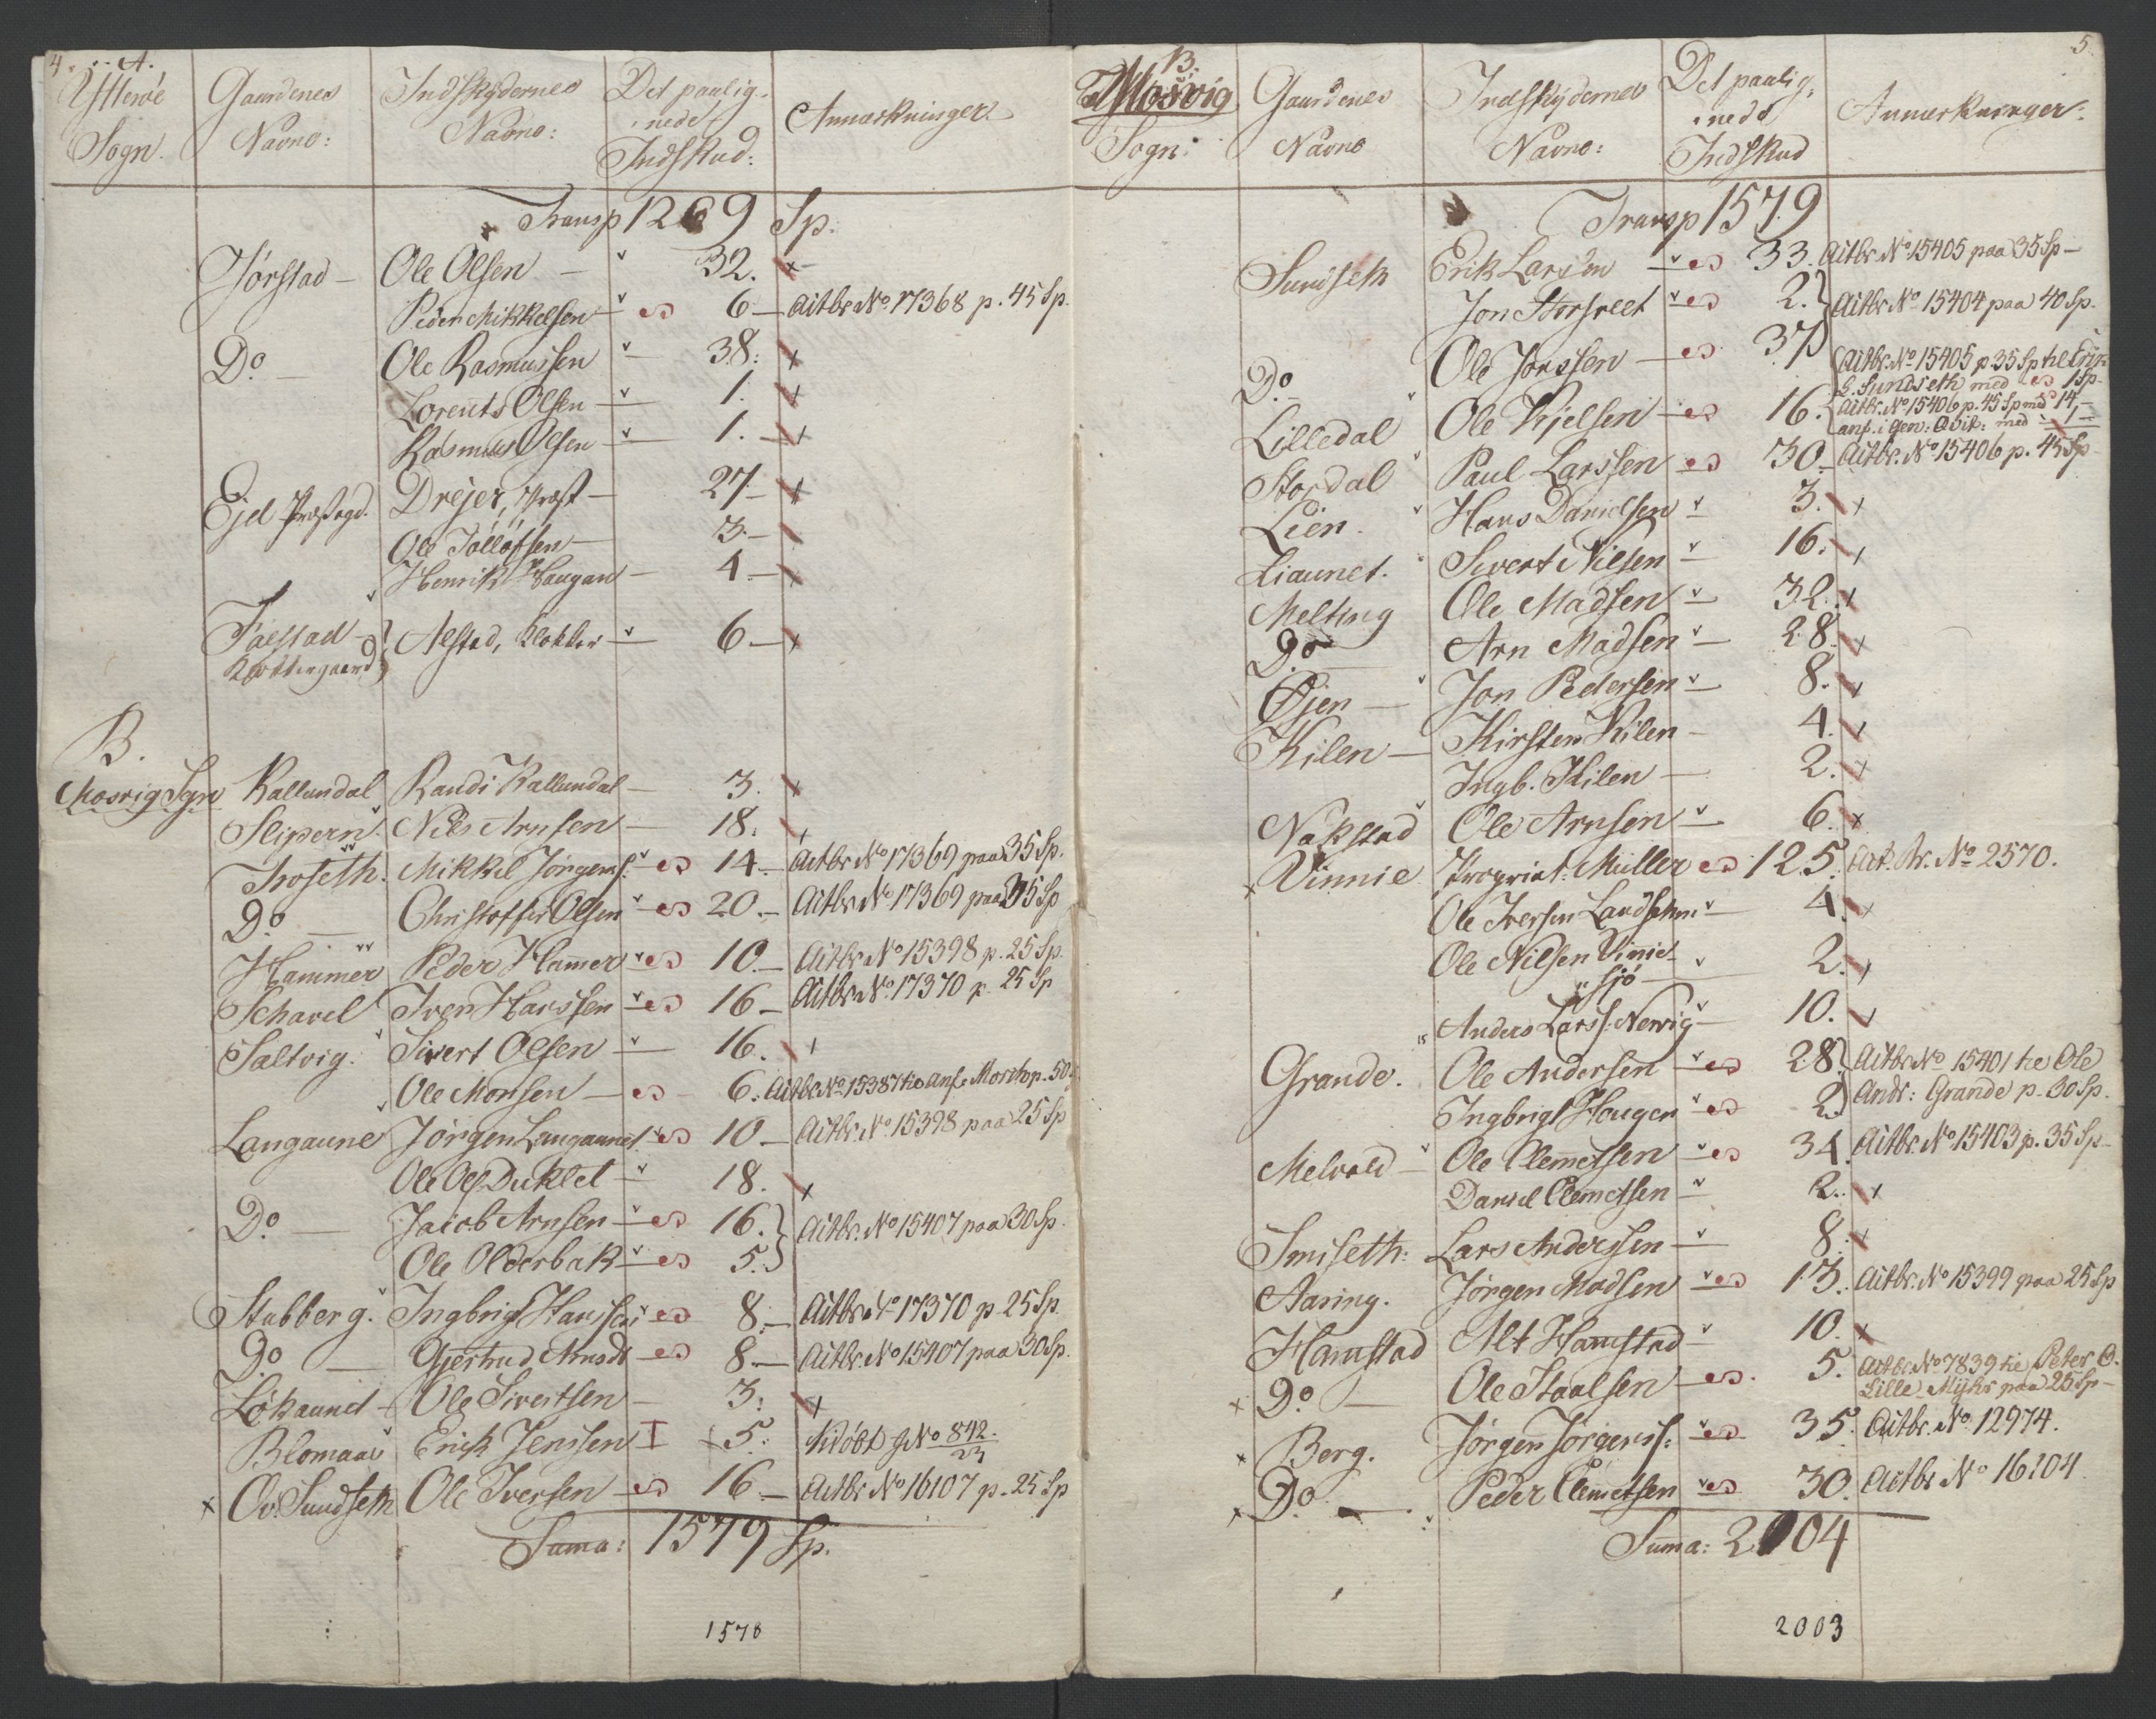 4. A.
Ytterøe Sogn. Gaardenes Navne: Indskydernes Navne: Det paalignede Indskud: Anmærkninger.
Transp 1269 Sp.
Hørstad — Ole Olsen — 32. x
Peder Mikkelsen 6 — Actbr No 17368 p. 45 Sp.
Do — Ole Rasmussen — 38: x
Lorents Olsen — 1. x
Rasmus Olsen — 1. — x
Ejel Præstegd. Drejer, Præst — 27 — x
Ole Tølløfsen — 3. —
Henrik Haugan — 4. — x
Falstad Klokkergaard } Alstad, Klokker — 6 — x
B.
Mosvig Sogn Kallundal Randi Kallundal — 3. x
Slipern Nils Arnsen — 18. x
Troseth. Mikkel Jørgens: 14 — Actbr No 17369 paa 35 Sp.
Do — Christoffer Olsen 20. — Actbr No 17369 paa 35 Sp
Hammer Peder Hamer 10. — Actbr No 15398 p. 25 Sp.
Schavel Iver Larssen 16 — Actbr No 17370 p. 25 Sp
Saltvig. Sivert Olsen — 16. x
Ole Monsen — 6. Actbr No 15387 p. 50
Langaune Jørgen Langaunet 10 — Actbr. No 15398 paa 25 Sp
Ole Ols Duklet — 18. x
Do. — Jacob Arnsen — 16. } Actbr. No 15407 paa 30 Sp.
Ole Olderbak — 5. }
Stubberg. Ingbrigt Hanssen 8. — Actbr No 17370 p. 25 Sp.
Do — Gjertrud Arnsdt 8. — Actbr. No 15407 paa 30 Sp.
Løkaunet — Ole Sivertsen — 3: x
Blomaas Erich Jenssen 5. No 842. 23
x Ov. Sundseth Ole Iversen 16 — Actbr No 16107 p. 25 Sp
Suma: 1579 Sp.
1578
5.
B.
Mosvig Sogn: Gaardenes Navne Indskydernes Navne: Det paalignede Indskud Anmerkninger.
Transp 1579
Sundseth Erik Larsen — 33. Actbr No 15405 paa 35 Sp —
Jon Storsveet 2. } Actbr No 15404 paa 40 Sp.
Do. — Ole Jonssen — 37 }
Actbr. No 15405 p. 35 Sp til Erik
L. Sundseth med 1 Sp.
Lilledal Ole Kjelsen — 16. Actbr. No 15406 p. 45 Sp med 14 —
anf. i Gen: Qvit: med 1 —
Stordal Paul Larssen 30 — Actbr. No 15406 p. 45 Sp
Lien. Hans Danielsen 3. x
Liaunet. Sivert Nilsen — 16. x
Melting Ole Madsen — 32. x
Do — Arn Madsen — 28. x
Øjen — Jon Pedersen — 8. x
Kilen — Kirsten Kilen — 4. x
Ingb. Kilen — 2. x
Nakstad Ole Arnsen — 6. x
x Vinnie Propriet: Müller 125. Act. Br. No 2570.
Ole Iversen Landsehm — 4. x
Ole Nilsen Vinnie
sjø — 2. x
Anders Larss. Nervig — 10. x
Grande. Ole Andersen — 28. } Actbr No 15401 til Ole
Ingbrigt Hauger 2. } Andr: Grande p. 30 Sp.
Melvold — Ole Clemetsen 34. Actbr. No 15403 p. 35 Sp —
Daniel Clemetsen — 2. x
Smiseth: Lars Anderssen — 8. x
Aaring. Jørgen Madsen 13. Actbr. No 15399 paa 25 Sp
Hamstad Alt Hamstad — 10. x
x Do — Ole Staalsen — 5. Actbr. No 7839 til Peter O.
Lille Myhr paa 25 Sp —
x Berg. Jørgen Jørgens: 35. Actbr. No. 12974.
x Do. — Peder Clemetsen 30. Actbr No 16104
Suma: 2004
2003